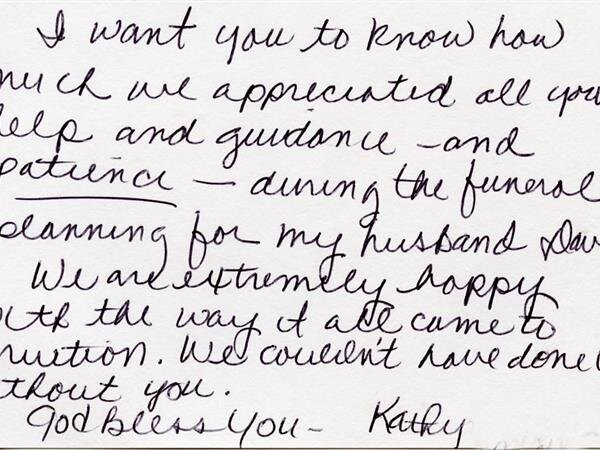 I want you to know how
much we appreciated all you
help and guidance - and
patience - during the funeral
planning for my husband Dav
We are extremely happy
ith the way it all came to
ruition. We couldn't have done i
thout you.
God Bless You - Kathy